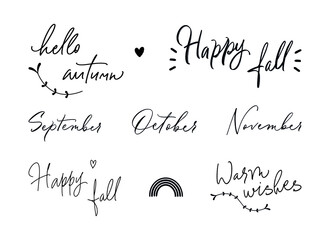 hello
autumn
Happy
fall
September October November
Happy
fall
Warm
wishes